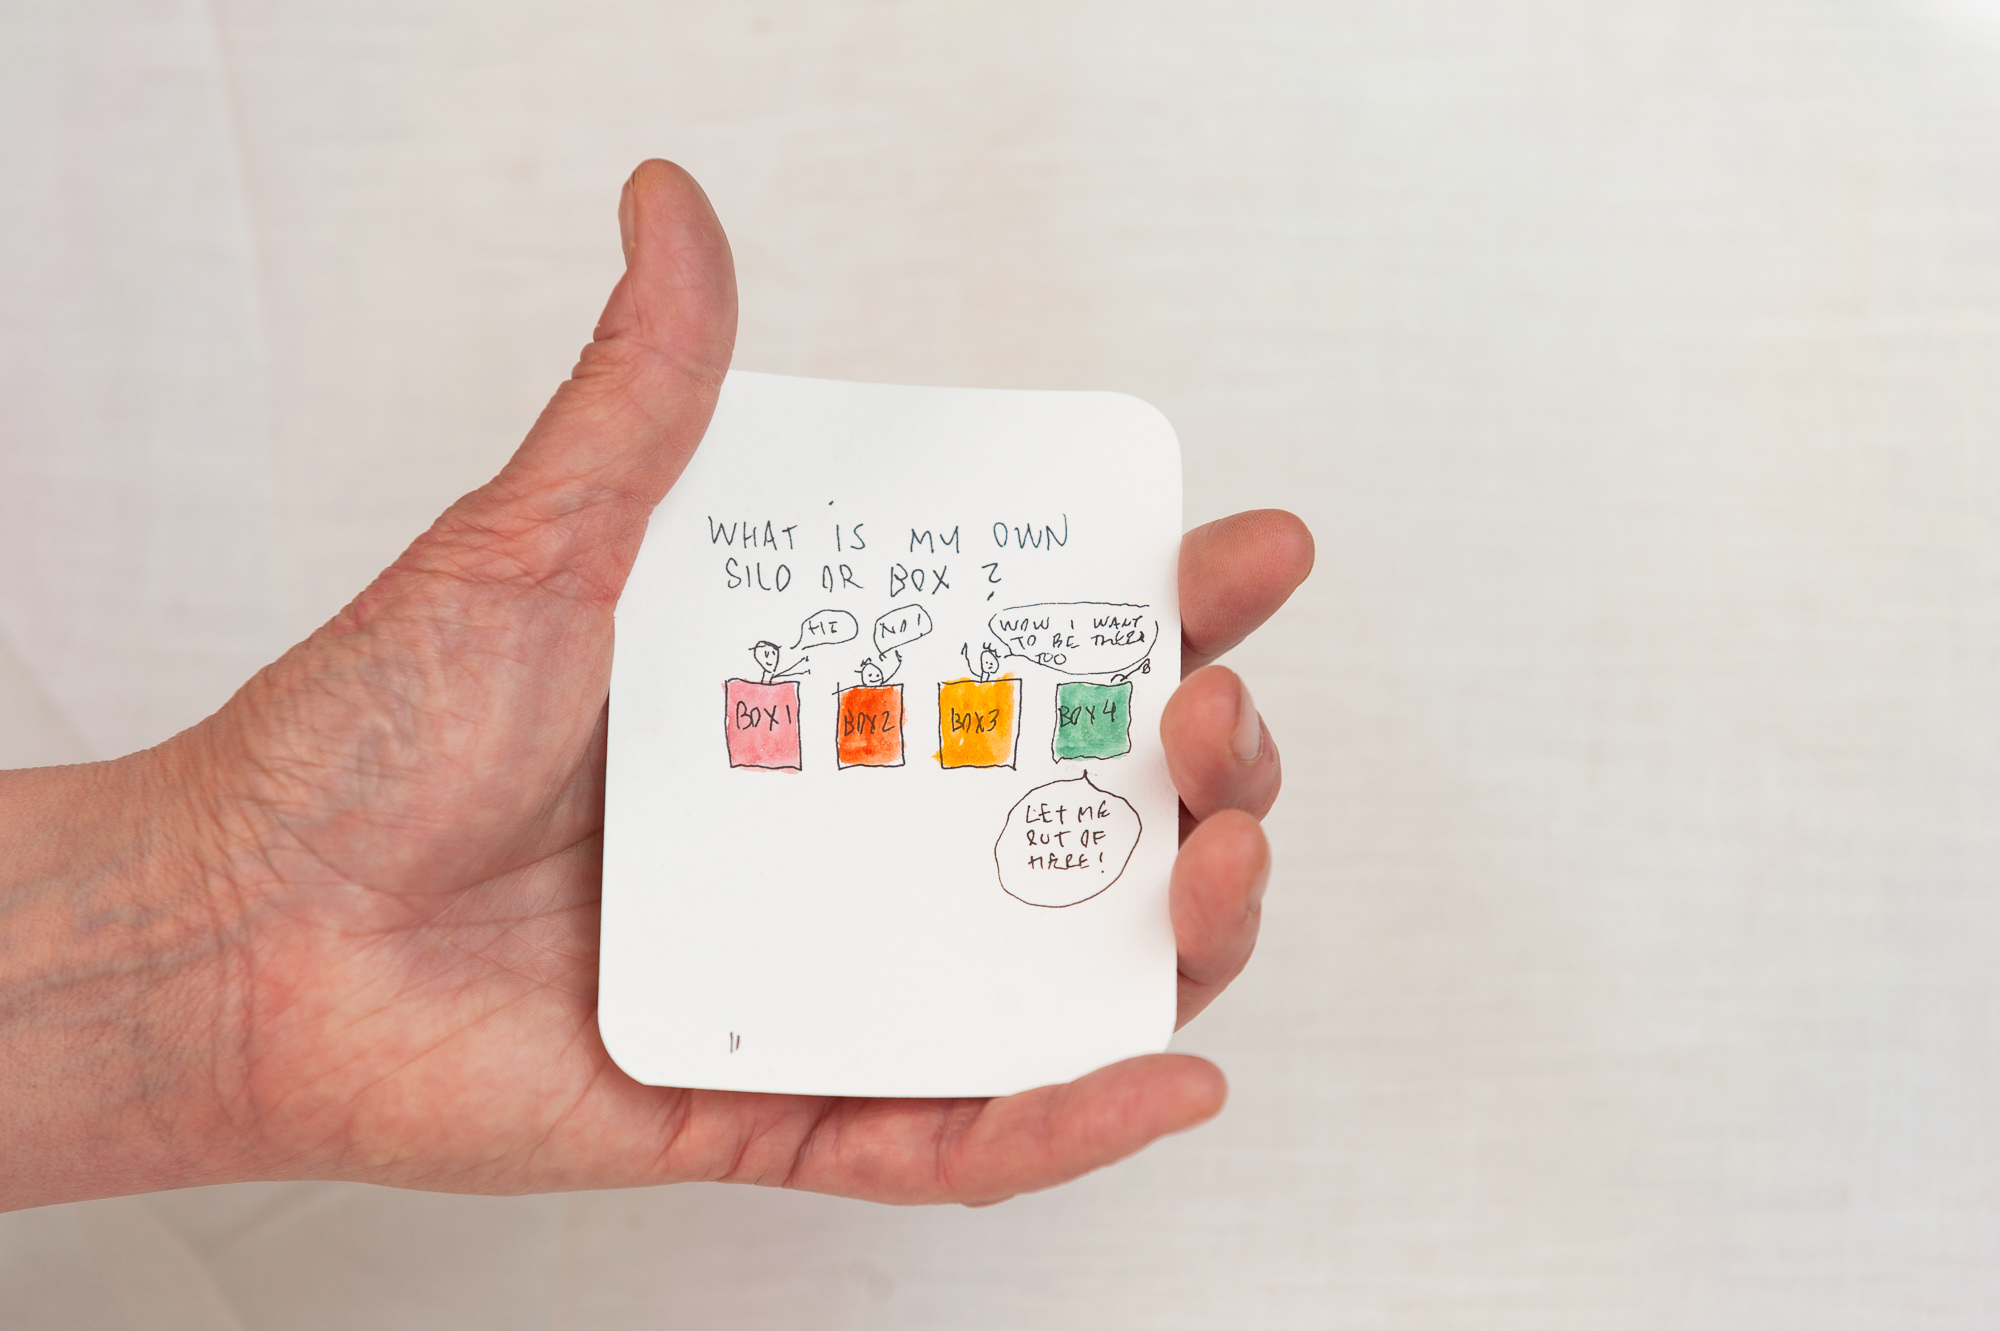 WHAT IS MY OWN
SILO OR BOX ?
HI
NO!
WOW I WANT
TO BE THERE
TOO
BOX 1
BOX 2
BOX 3
BOX 4
LET ME
OUT OF
HERE!
11